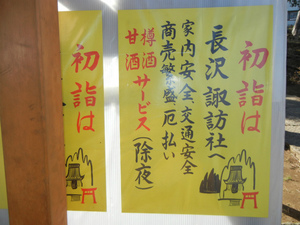 初詣は
長沢諏訪社へ
家内安全、交通安全
商売繁盛、厄払い
樽酒サービス(除夜)
甘酒
初詣は